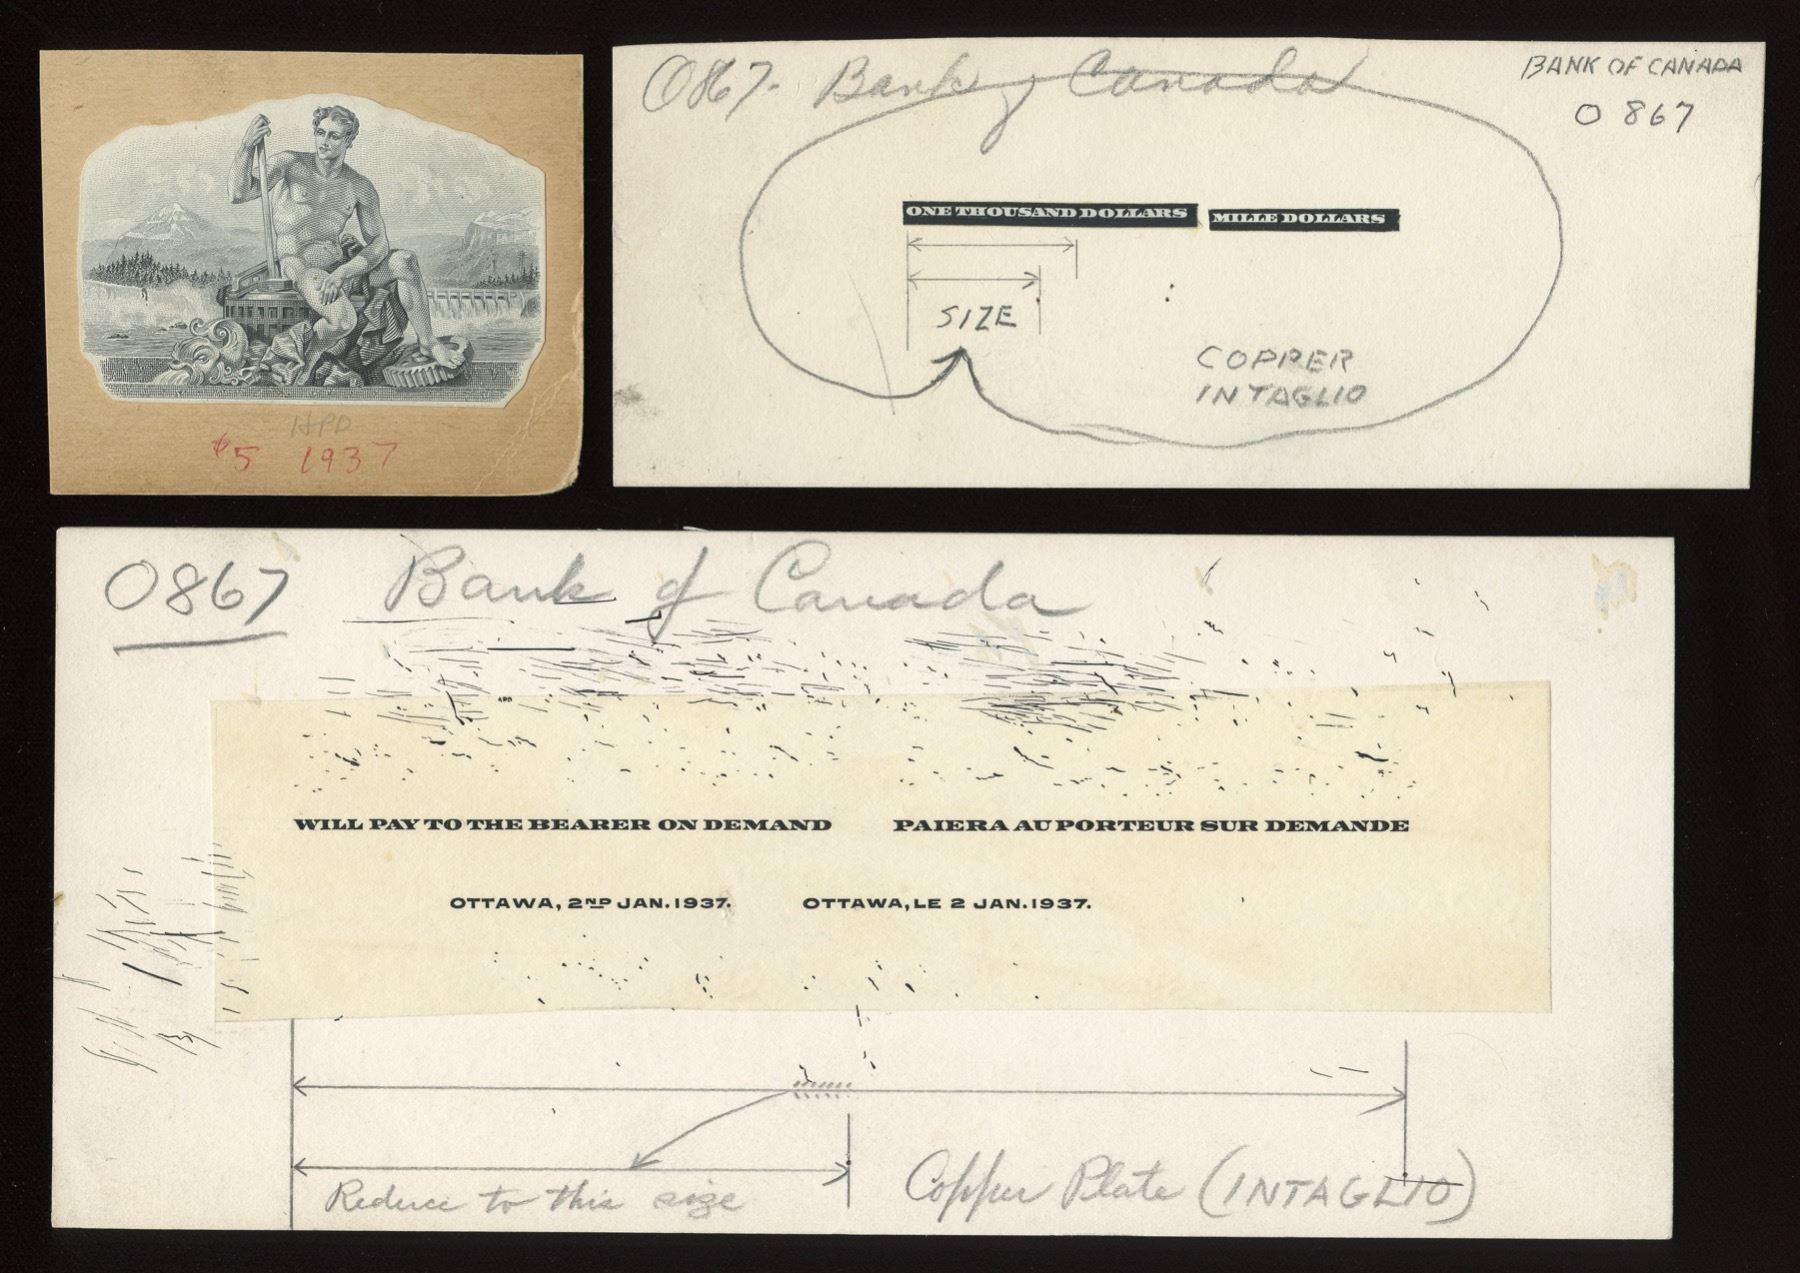 $5 1937
O867. Bank of Canada
BANK OF CANADA
O 867
ONE THOUSAND DOLLARS MILLE DOLLARS
SIZE
COPPER
INTAGLIO
O867 Bank of Canada
WILL PAY TO THE BEARER ON DEMAND PAIERA AU PORTEUR SUR DEMANDE
OTTAWA, 2ND JAN. 1937. OTTAWA, LE 2 JAN. 1937.
Reduce to this size
Copper Plate (INTAGLIO)